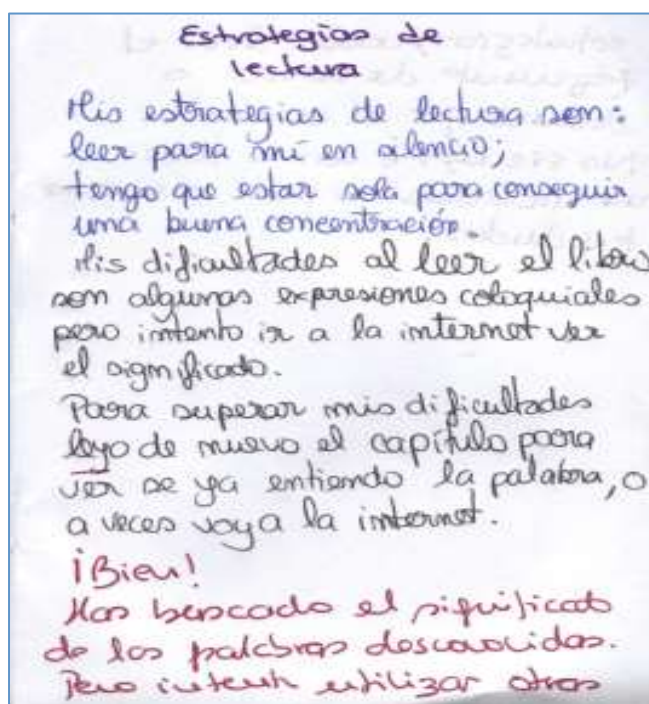 Estrategias de
lectura
Mis estrategias de lectura son:
leer para mí en silencio;
tengo que estar sola para conseguir
una buena concentración.
Mis dificultades al leer el libro
son algunas expresiones coloquiales
pero intento ir a la internet ver
el significado.
Para superar mis dificultades
leyo de nuevo el capítulo para
ver se ya entiendo la palabra, o
a veces voy a la internet.
¡Bien!
Has buscado el significado
de las palabras desconocidas.
Pero intenta utilizar otras